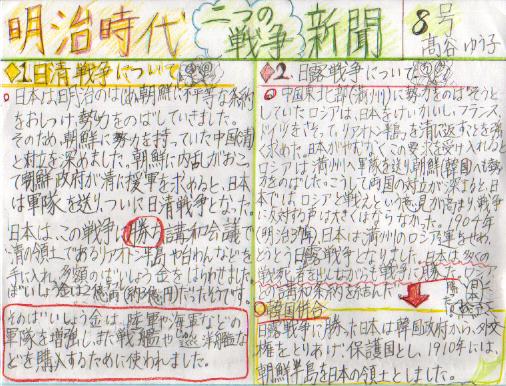 明治時代 二つの戦争 新聞 8号
髙谷 ゆう子
1.日清戦争について
日本は明治のはじめ朝鮮に不平等な条約
をおしつけ勢力をのばしていきました。
そのため、朝鮮に勢力を持っていた中国(清)
と対立を深めました。朝鮮に内乱がおこっ
て朝鮮政府が清に援軍を求めると、日本
は軍隊を送りついに日清戦争となった。
日本は、この戦争に勝ち講和会議で
清の領土であるリアオトン半島や台わんなどを
手に入れ、多額のばいしょう金をはらわせました。
ばいしょう金は2億両(約3億円)だったそうです。
そのばいしょう金は、陸軍や海軍などの
軍隊を増強し、また戦艦や
どを購入するために使われました。
2.日露戦争について
中国東北部(満州)に勢力をのばそうと
していたロシアは、日本をけいかいし、フランス、
ドイツをさそって、リアオトン半島を清に返すことを強く
求めた。日本がやむなくこの要求を受け入れると
ロシアは満州へ軍隊を送り朝鮮(韓国)へも勢力
をのばした。こうして両国の対立が深まると、日
本では、ロシアと戦えという意見が高まり、戦争
に反対する声は大きくはならなかった。1904年
(明治37年)、日本は満州のロシア軍をせめ、
とうとう日露戦争となりました。日本は多くの
戦死者を出しながらも戦争に勝ち、ロシア
と講和条約を結んだ
韓国併合
日露戦争に勝った日本は韓国政府から、外交
権をとりあげ、保護国とし、1910年には、
朝鮮半島を日本の領土としました。